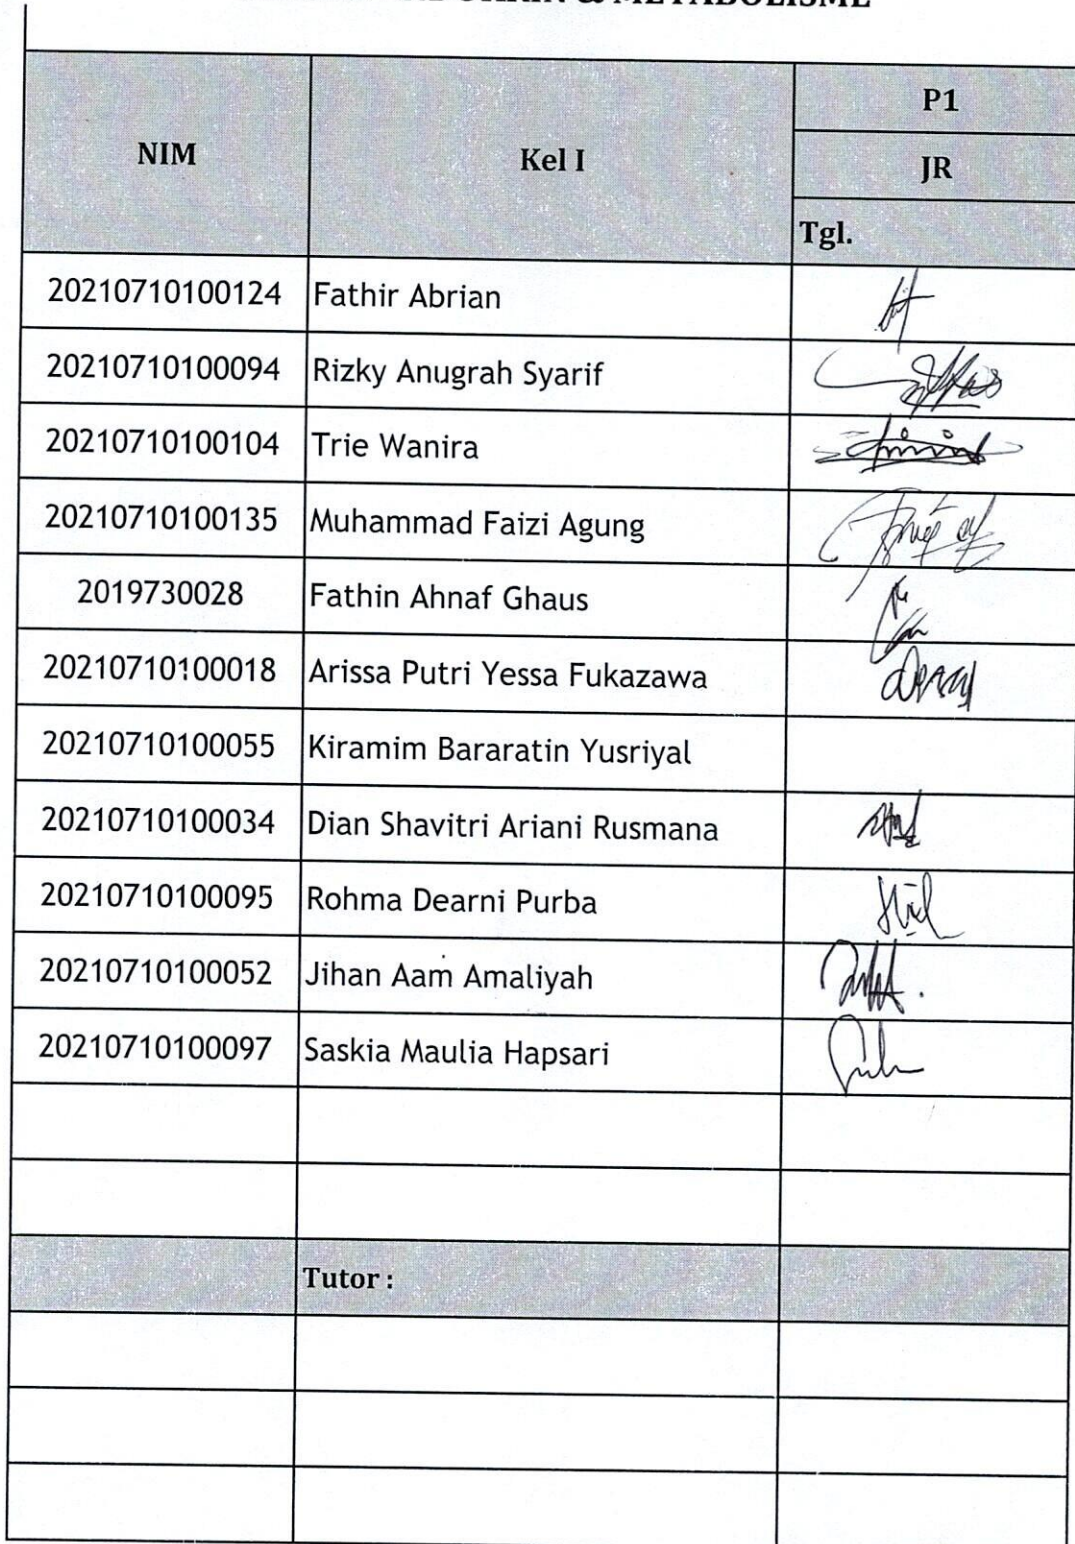 & METABOLISME
NIM
Kel I
P1
JR
Tgl.
20210710100124 Fathir Abrian
20210710100094 Rizky Anugrah Syarif
20210710100104 Trie Wanira
20210710100135 Muhammad Faizi Agung
2019730028 Fathin Ahnaf Ghaus
20210710100018 Arissa Putri Yessa Fukazawa
20210710100055 Kiramim Bararatin Yusriyal
20210710100034 Dian Shavitri Ariani Rusmana
20210710100095 Rohma Dearni Purba
20210710100052 Jihan Aam Amaliyah
20210710100097 Saskia Maulia Hapsari
Tutor :